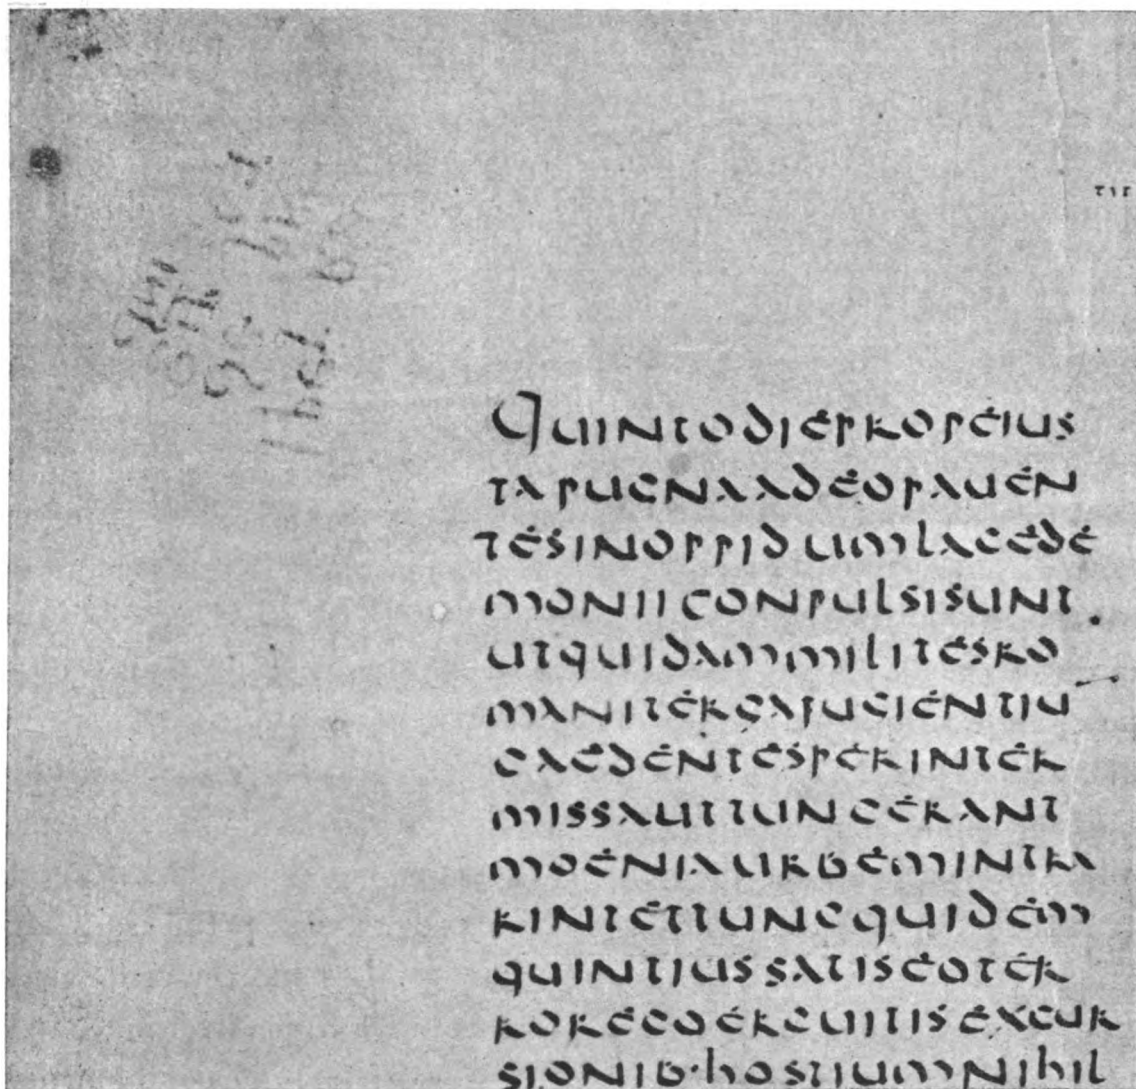 TIT
Quintodiepropeius
tapugnaadeopauen
tesinoppidumlacede
moniiconpulsisunt
utquidammilitesro
manitergafugientiu
caedentesperinter
missauttuncerant
moeniaurbemintra
rintettuncquidem
quintiussatiseoter
rorecoercuitisexcur
sionib·hostiumnihil